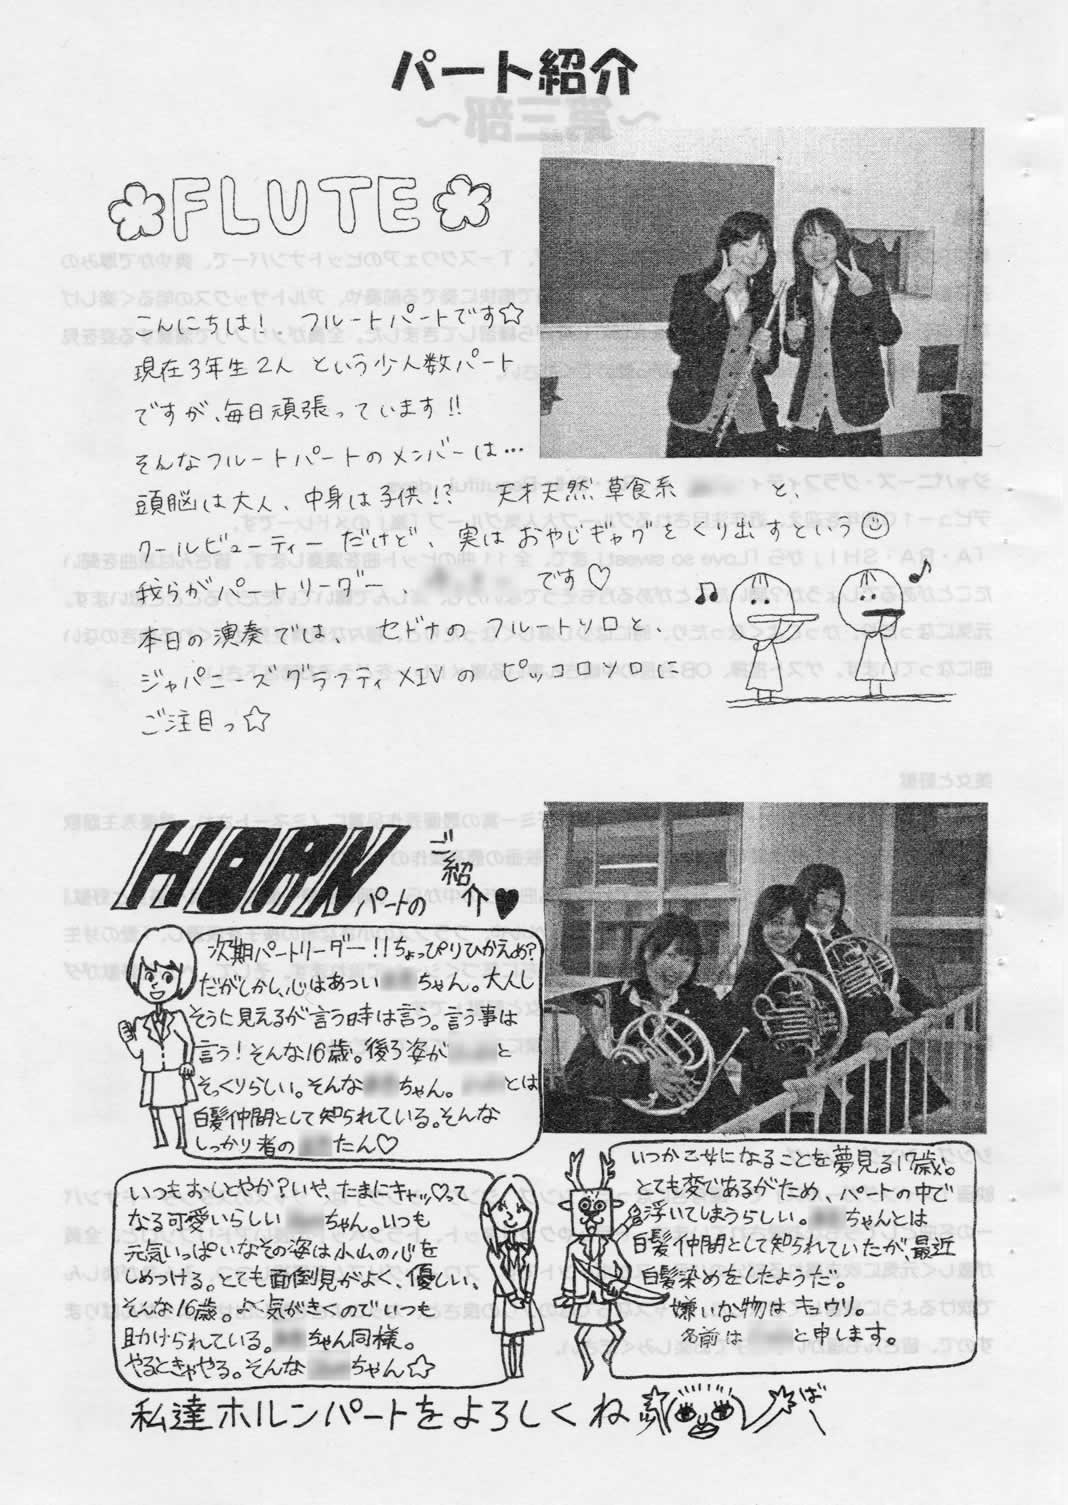 パート紹介
FLUTE
こんにちは！フルートパートです☆
現在3年生2人 という少人数パート
ですが、毎日頑張っています!!
そんなフルートパートのメンバーは…
頭脳は大人、中身は子供!? 天才天然草食系 と、
クールビューティーだけど、実はおやじギャグをくり出すという☺
我らがパートリーダー、 です♡
本日の演奏では セドナのフルートソロと、
ジャパニーズグラフティXIVの ピッコロソロに
ご注目っ☆
HORNパートのご紹介♥
次期パートリーダー!!ちょっぴりひかえめ?
だがしかし、心はあつい ちゃん。大人し
そうに見えるが言う時は言う。言う事は
言う！そんな16歳。後ろ姿が と
そっくりらしい。そんな ちゃん。 とは
白髪仲間として知られている。そんな
しっかり者の たん♡
いつもおしとやか?いや、たまにキャッ♡って
なる可愛いらしい ちゃん。いつも
元気いっぱいなその姿は小山の心を
しめつける。とても面倒見がよく、優しい、
そんな16歳。よく気がきくのでいつも
助けられている。 ちゃん同様。
やるときゃやる。そんな ちゃん☆
いつか乙女になることを夢見る17歳。
とても変であるがため、パートの中で
浮いてしまうらしい。 ちゃんとは
白髪仲間として知られていたが、最近
白髪染めをしたようだ。
嫌いな物はキュウリ。
名前は と申します。
私達ホルンパートをよろしくね